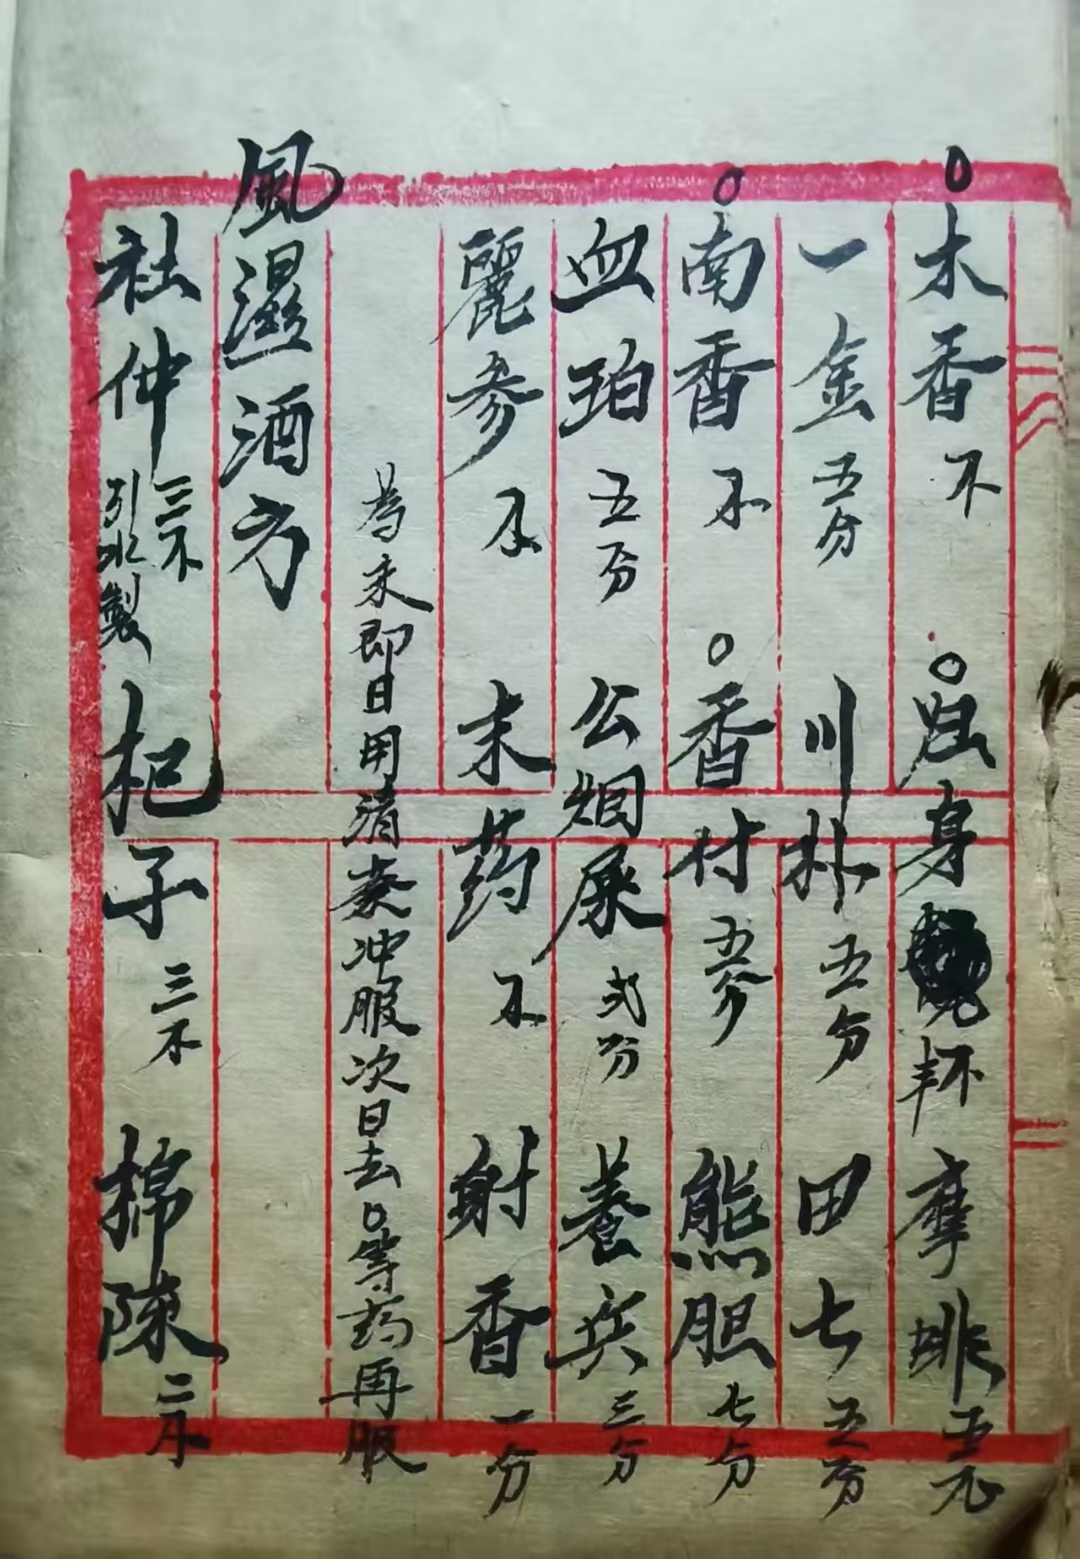 木香不 归身 不 摩排五
一金五分 川朴五分 田七五分
南香不 香付五分 熊胆七分
血珀五分 公烟尿弍分 養兵三分
麗参不 末药不 射香一分
為末即日用清 冲服次日去○等药再服
風濕酒方
社仲三不 引水製 杞子三不 棉陳二不